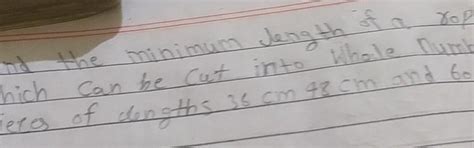 nd the minimum length of a rop
hich can be cut into whole num
ieres of dengths 36 cm 48 cm and 60